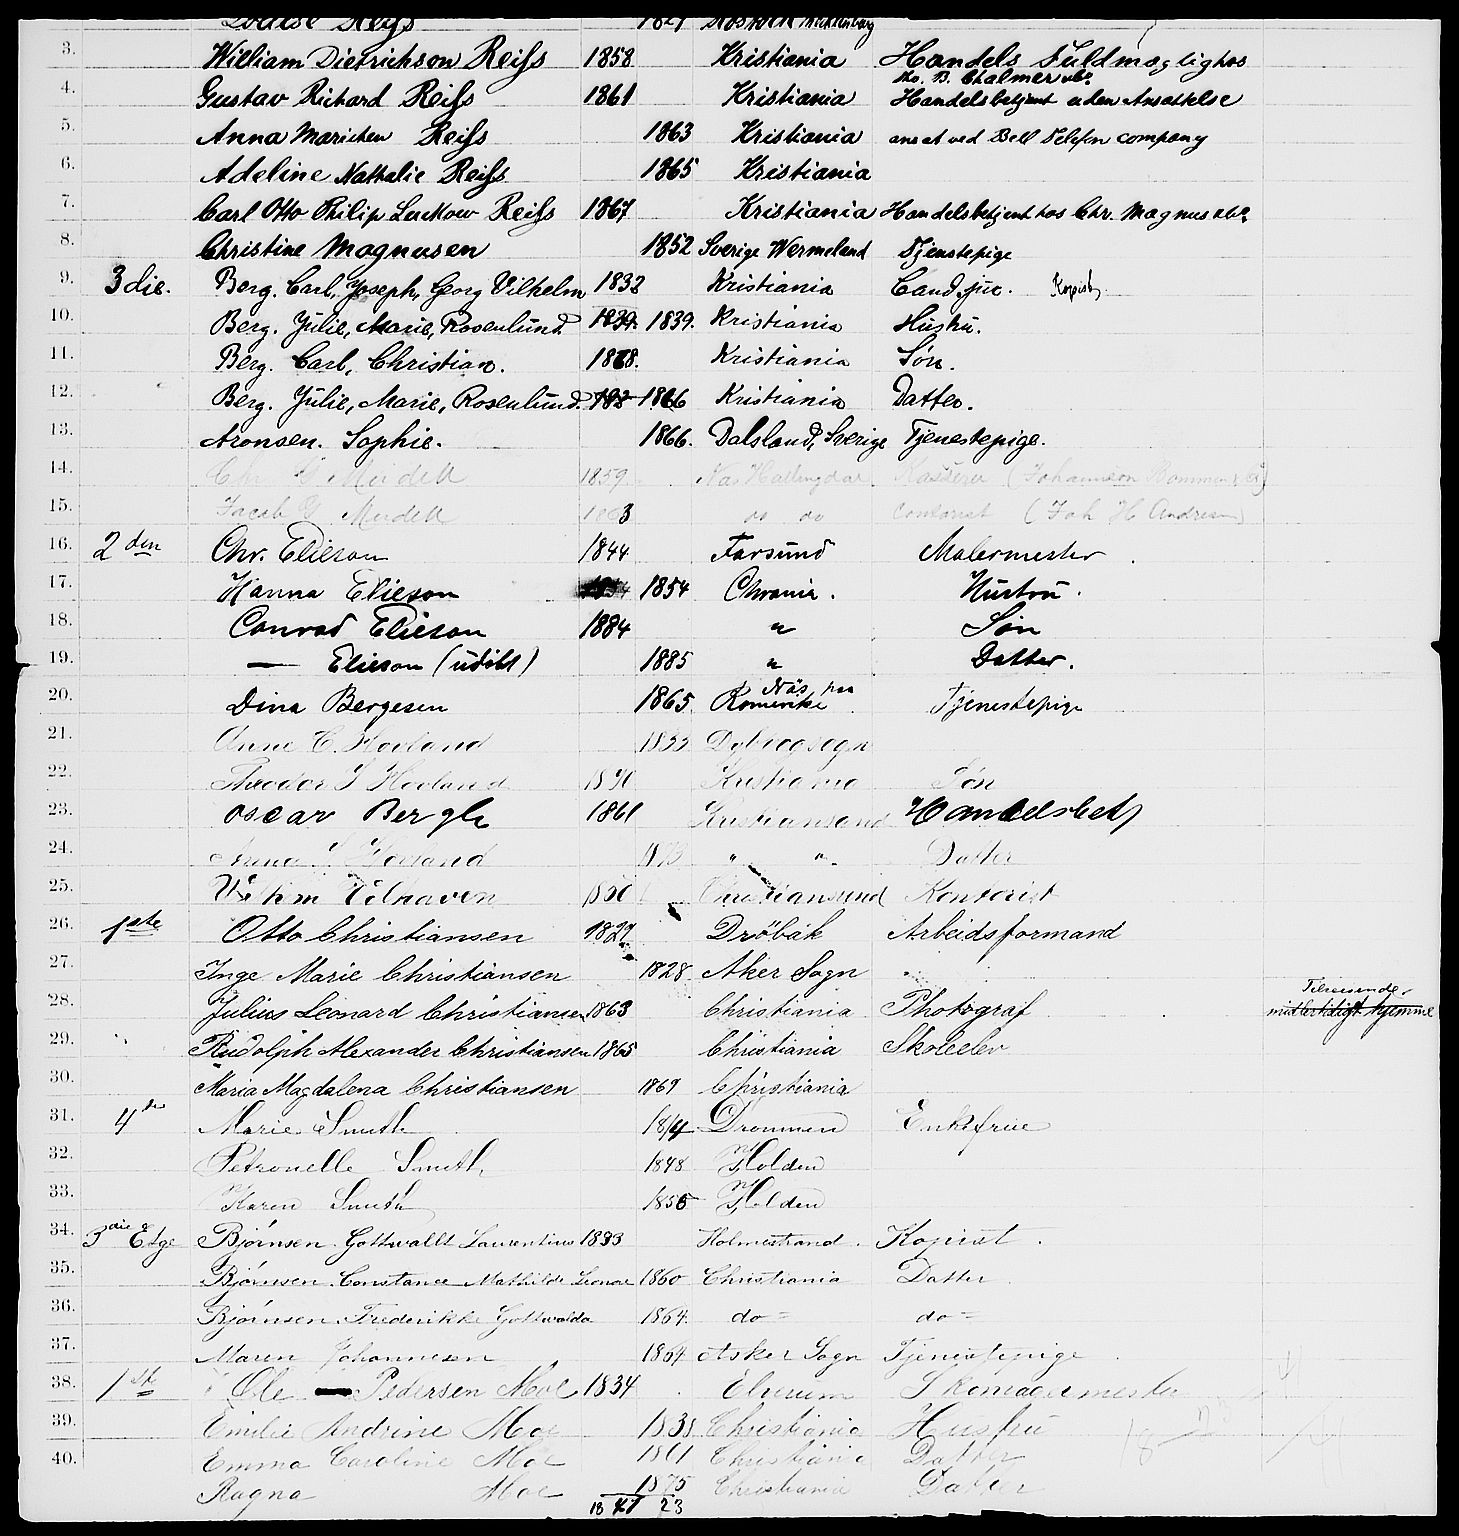 Louise Reiss 1827 Rostock Mecklenburg
3. William Dietrichson Reiss 1858 Kristiania Handels Fuldmægtig hos
Ho. B. Chalmer &Co
4. Gustav Richard Reiss 1861 Kristiania Handelsbetjent uden Ansættelse
5. Anna Marichen Reiss 1863 Kristiania ansat ved Bell Telefon company
6. Adeline Nathalie Reiss 1865 Kristiania
7. Carl Otto Philip Reiss 1867 Kristiania Handelsbetjent hos Chr. Magnus &Co.
8. Christine Magnusen 1852 Sverige Wermeland Tjenstepige
9. 3die. Berg. Carl, Joseph, Georg Vilhelm 1832 Kristiania Cand. jur. Kopist
10. Berg. Julie, Marie, Rosenlund. 1839. 1839. Kristiania Hustru.
11. Berg. Carl, Christian. 1868. Kristiania Søn.
12. Berg. Julie, Marie, Rosenlund. 183 1866 Kristiania Datter.
13. Aronsen. Sophie. 1866. Dalsland, Sverige Tjenestepige.
14. Chr. G Meidell 1859 Næs Hallingdal Kasserer (Johannson
15. Jacob G Meidell 1863 do do Contorist (Joh H Andresen)
16. 2den Chr. Elieson 1844 Farsund Malermester
17. Hanna Elieson 1854 Chrania. Hustru.
18. Conrad Elieson 1884 " Søn
19. — Elieson (udøbt) 1885 " Datter.
20. Dina Bergesen 1865 Näs paa Romerike Tjenestepige
21. Anne C. Hovland 1833 Dybvogsogn
22. Theodor S Hovland 1870 Kristiania Søn
23. Oscar Bergh 1861 Kristiansand Handelsbetj
24. Anna S Hovland 1873 " " Datter
25. Vilhavен Christiansund Kontorist
26. 1ste Otto Christiansen 1829 Drøbak Arbeidsformand
27. Inge Marie Christiansen 1828 Aker Sogn
Tilreisende
28. Julius Leonard Christiansen 1863 Christiania Photograf midlertidigt hjemme
29. Rudolph Alexander Christiansen 1865 Christiania Skoleelev
30. Maria Magdalena Christiansen 1869 Christiania
31. 4de Marie Smith 1814 Drammen Enkefrue
32. Petronelle Smith 1848 Holden
33. Karen Smith 1855 Holden
34. 3die Etge Bjørnsen. Gottwallt Laurentius 1833 Holmestrand. Kopist.
35. Bjørnsen. Constance Mathilde Leonore 1860 Christiania Datter
36. Bjørnsen. Frederikke Gottwalda 1864. do = do =
37. Maren Johannesen 1864 Asker Sogn Tjenestepige
38. 1ste Ole Pedersen Moe 1834 Elverum Skomagermester
39. Emilie Andrine Moe 1838 Christiania Hustru
40. Emma Caroline Moe 1861 Christiania Datter
Ragna Moe 1875 Christiania Datter
18 23